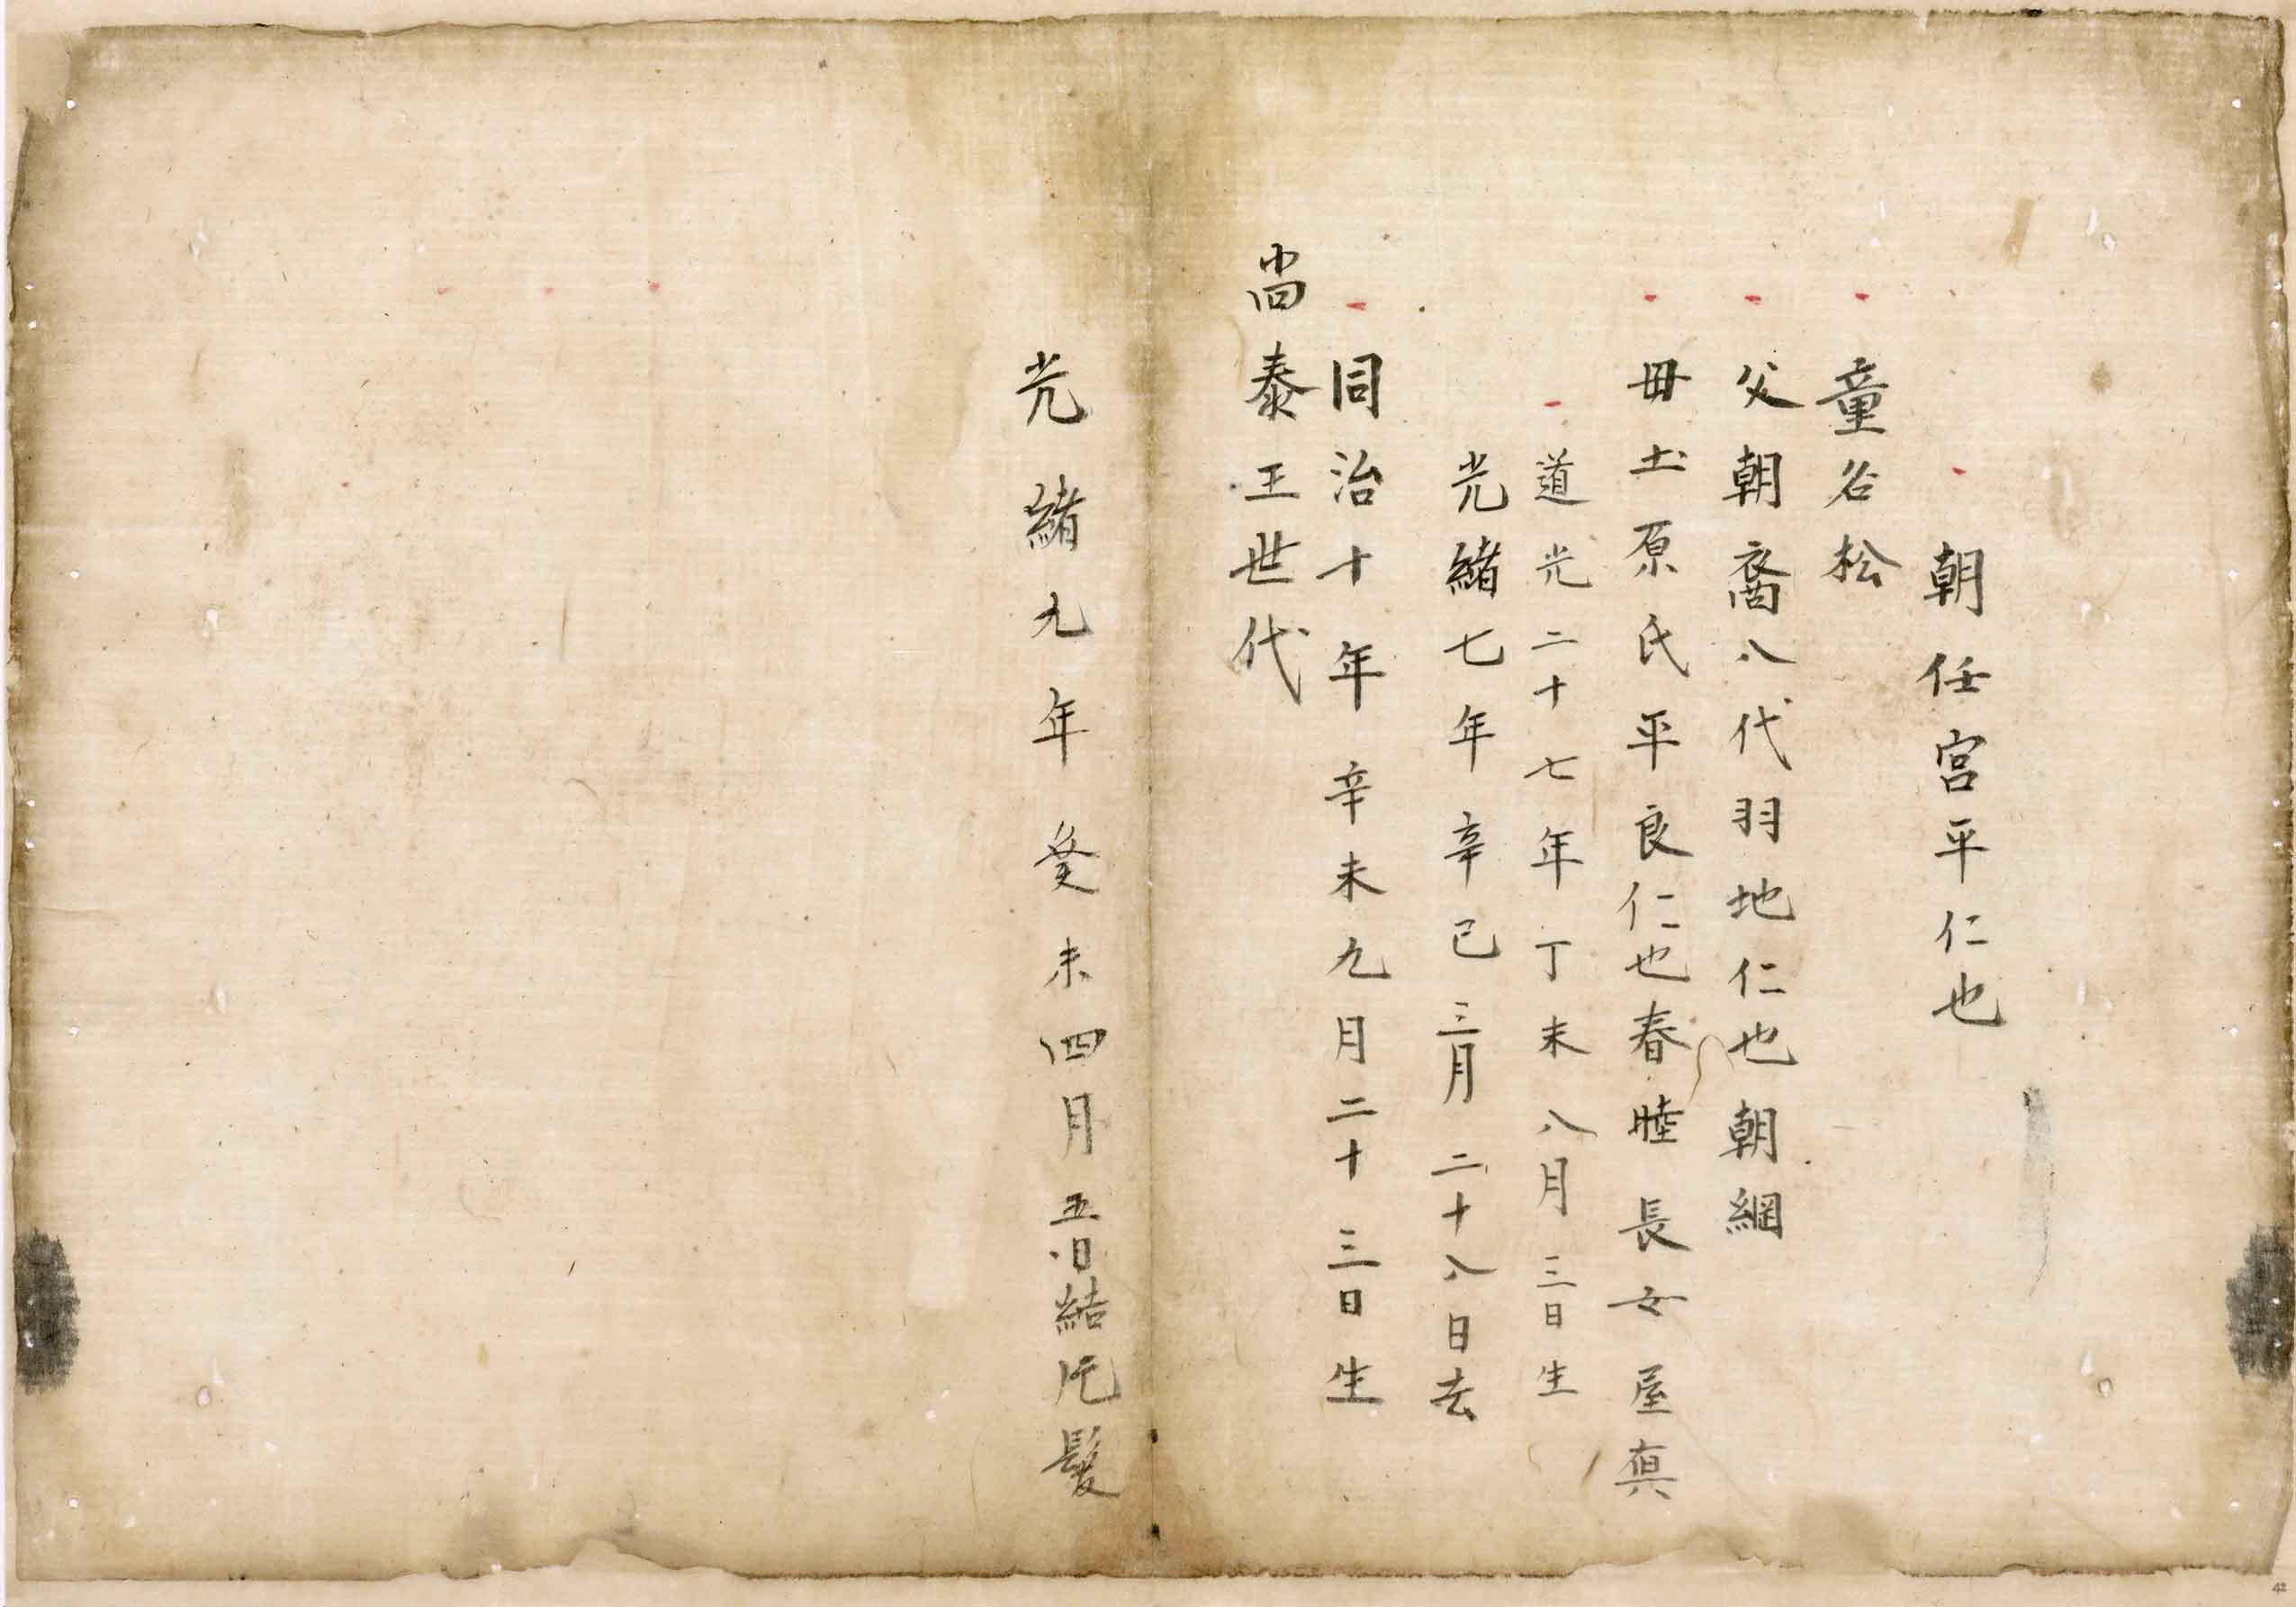 朝任宮平仁也
童名松
父朝裔八代羽地仁也朝綱
毌土原氏平良仁也春睦長女屋真
道光二十七年丁未八月三日生
光緒七年辛巳三月二十八日去
同治十年辛未九月二十三日生
尚泰王世代
光緒九年癸未四月五日結髮
42